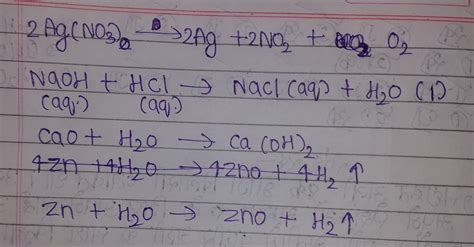 2Ag(NO3)2 → 2Ag + 2NO2 + O2
NaOH + HCl → NaCl (aq) + H2O (l)
(aq.) (aq.)
CaO + H2O → Ca(OH)2
4Zn + 4H2O → 4ZnO + 4H2 ↑
Zn + H2O → ZnO + H2 ↑